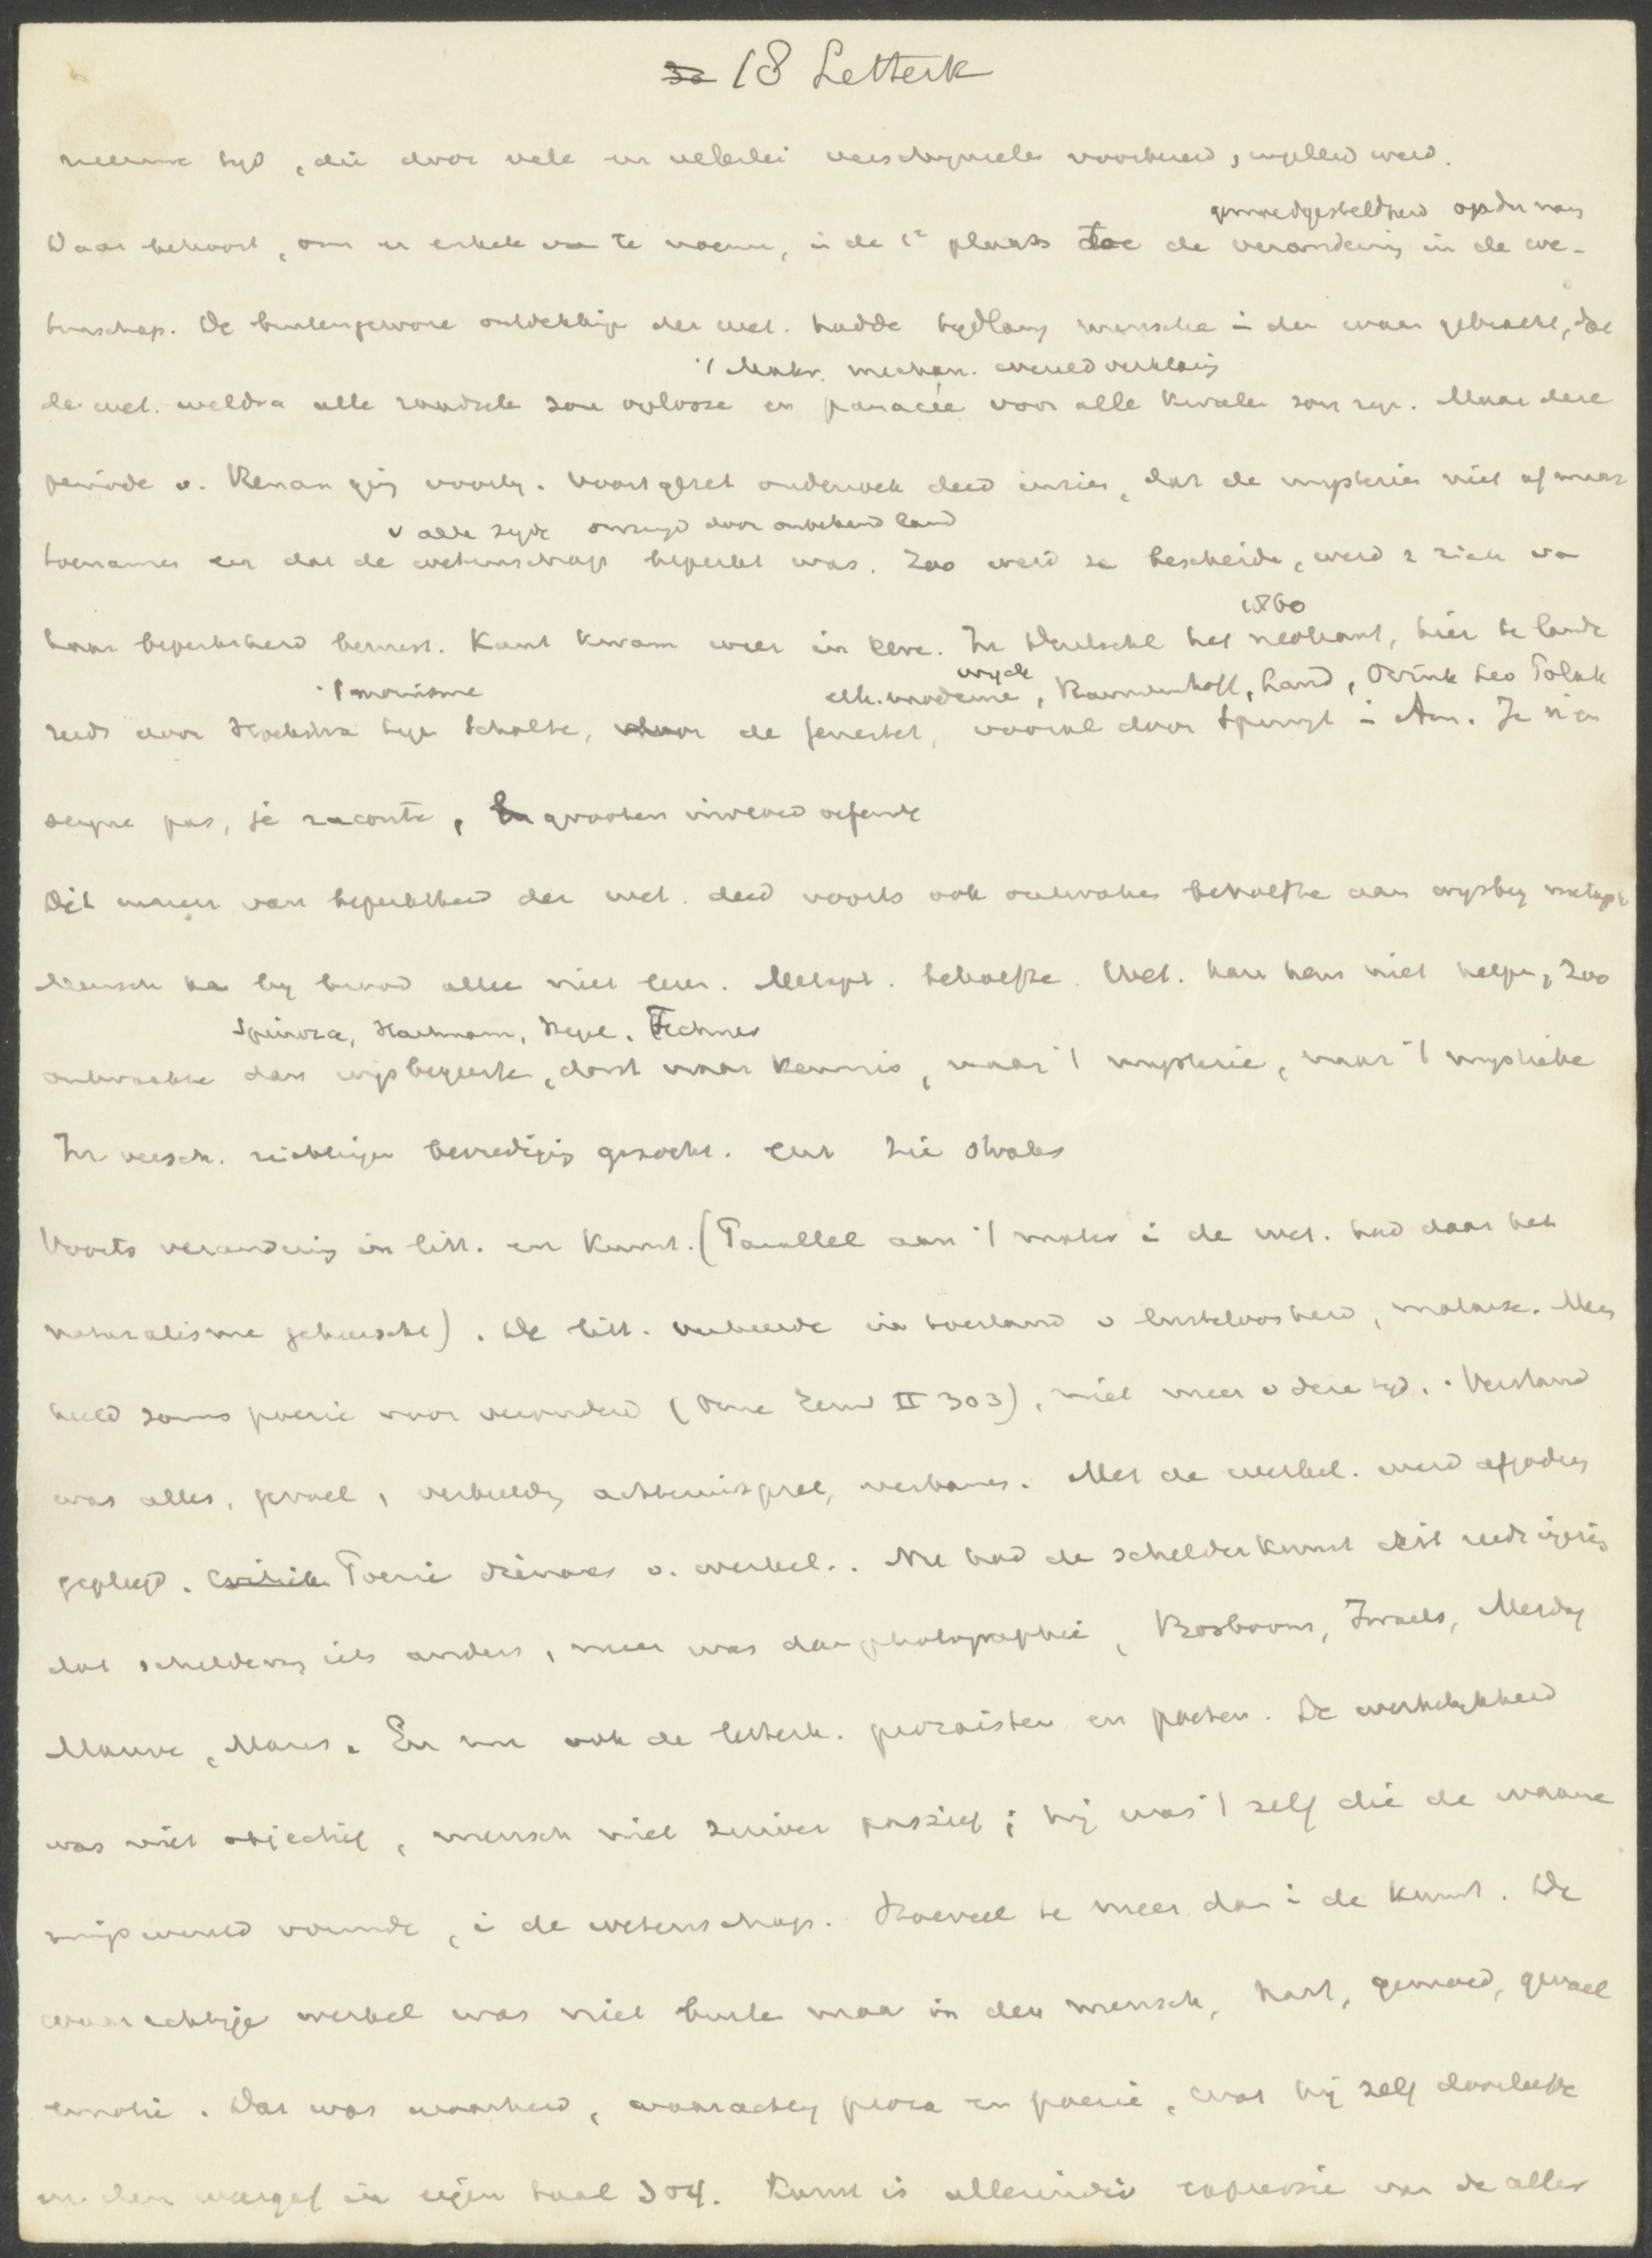 18 Letterk
nieuwe tijd, die door vele en velerlei verschijnselen voorbereid, ingeleid werd.
gemoedgesteldheid
Daar behoort, om er enkele van te noemen, in de 1e plaats toe de verandering in de we-
tenschap. De buitengewone ontdekkinge der wet. hadde tijdlang mensche in den waan gebracht, dat
't Mater. mechan. wereldverklaring
de wet. weldra alle raadsele zou oplosse en panacée voor alle kwale zou zijn. Maar deze
periode v. Renan ging voorby. Voortgezet onderzoek deed inzien, dat de mysterien niet af maar
v alle zyde omringd door onbekend land
toenamen en dat de wetenschap beperkt was. Zoo werd ze bescheide, werd z zich va
1860
haar beperktheid bewust. Kant kwam weer in eere. In Duitschl het neokant, hier te lande
't monisme
eth. moderne, Rauwenhoff, Land, Ovink Leo Polak
reeds door Hoekstra tege Scholte, door de Genestet, vooral door Spruyt in Am. Je n'en
seigne pas, je raconte, grooten invloed oefende
Dit inzien van beperktheid der wet. deed voorts ook ontwaken behoefte aan wijsbeg metaph
Mensch ka by brood allee niet leven. Metaph. behoefte. Wet. kan hem niet helpe, Zoo
Spinoza, Hartmann, Hegel, Fechner
ontwaakte dan wijsbegeerte, dorst naar kennis, naar 't mysterie, naar 't mystieke
In versch. richtingen bevrediging gezocht. Cur zie dwales
Voorts verandering in litt. en kunst. (Parallel aan 't mater in de wet. had daar het
naturalisme geheerscht). De litt. verkeerde in toestand v lusteloosheid, malaise. Men
hield soms poezie voor verouderd (Onze Eeuw II 303), niet meer v deze tijd. Verstand
was alles, gevoel, verbeelding achteruitgezet, verbannen. Met de werkel. werd afgodery
gepleegd. Poezie dienares v. werkel. Nu had de schilderkunst dit reeds ingezien
dat schildering iets anders, meer was dan photographie, Bosboom, Israels, Mesdag
Mauve, Maris. En nu ook de letterk. prozaisten en poeten. De werkelykheid
was niet objectief, mensch niet zuiver passief; hij was 't zelf die de ware
wereld vormde, in de wetenschap. Hoeveel te meer dan in de kunst. De
waarachtige werkel was niet buite maar in den mensch, hart, gemoed, gevoel
emotie. Dat was waarheid, waarachtig proza en poezie, wat hij zelf doorleefde
en den weergaf in eigen taal 304. Kunst is allerindiv expressie van de aller